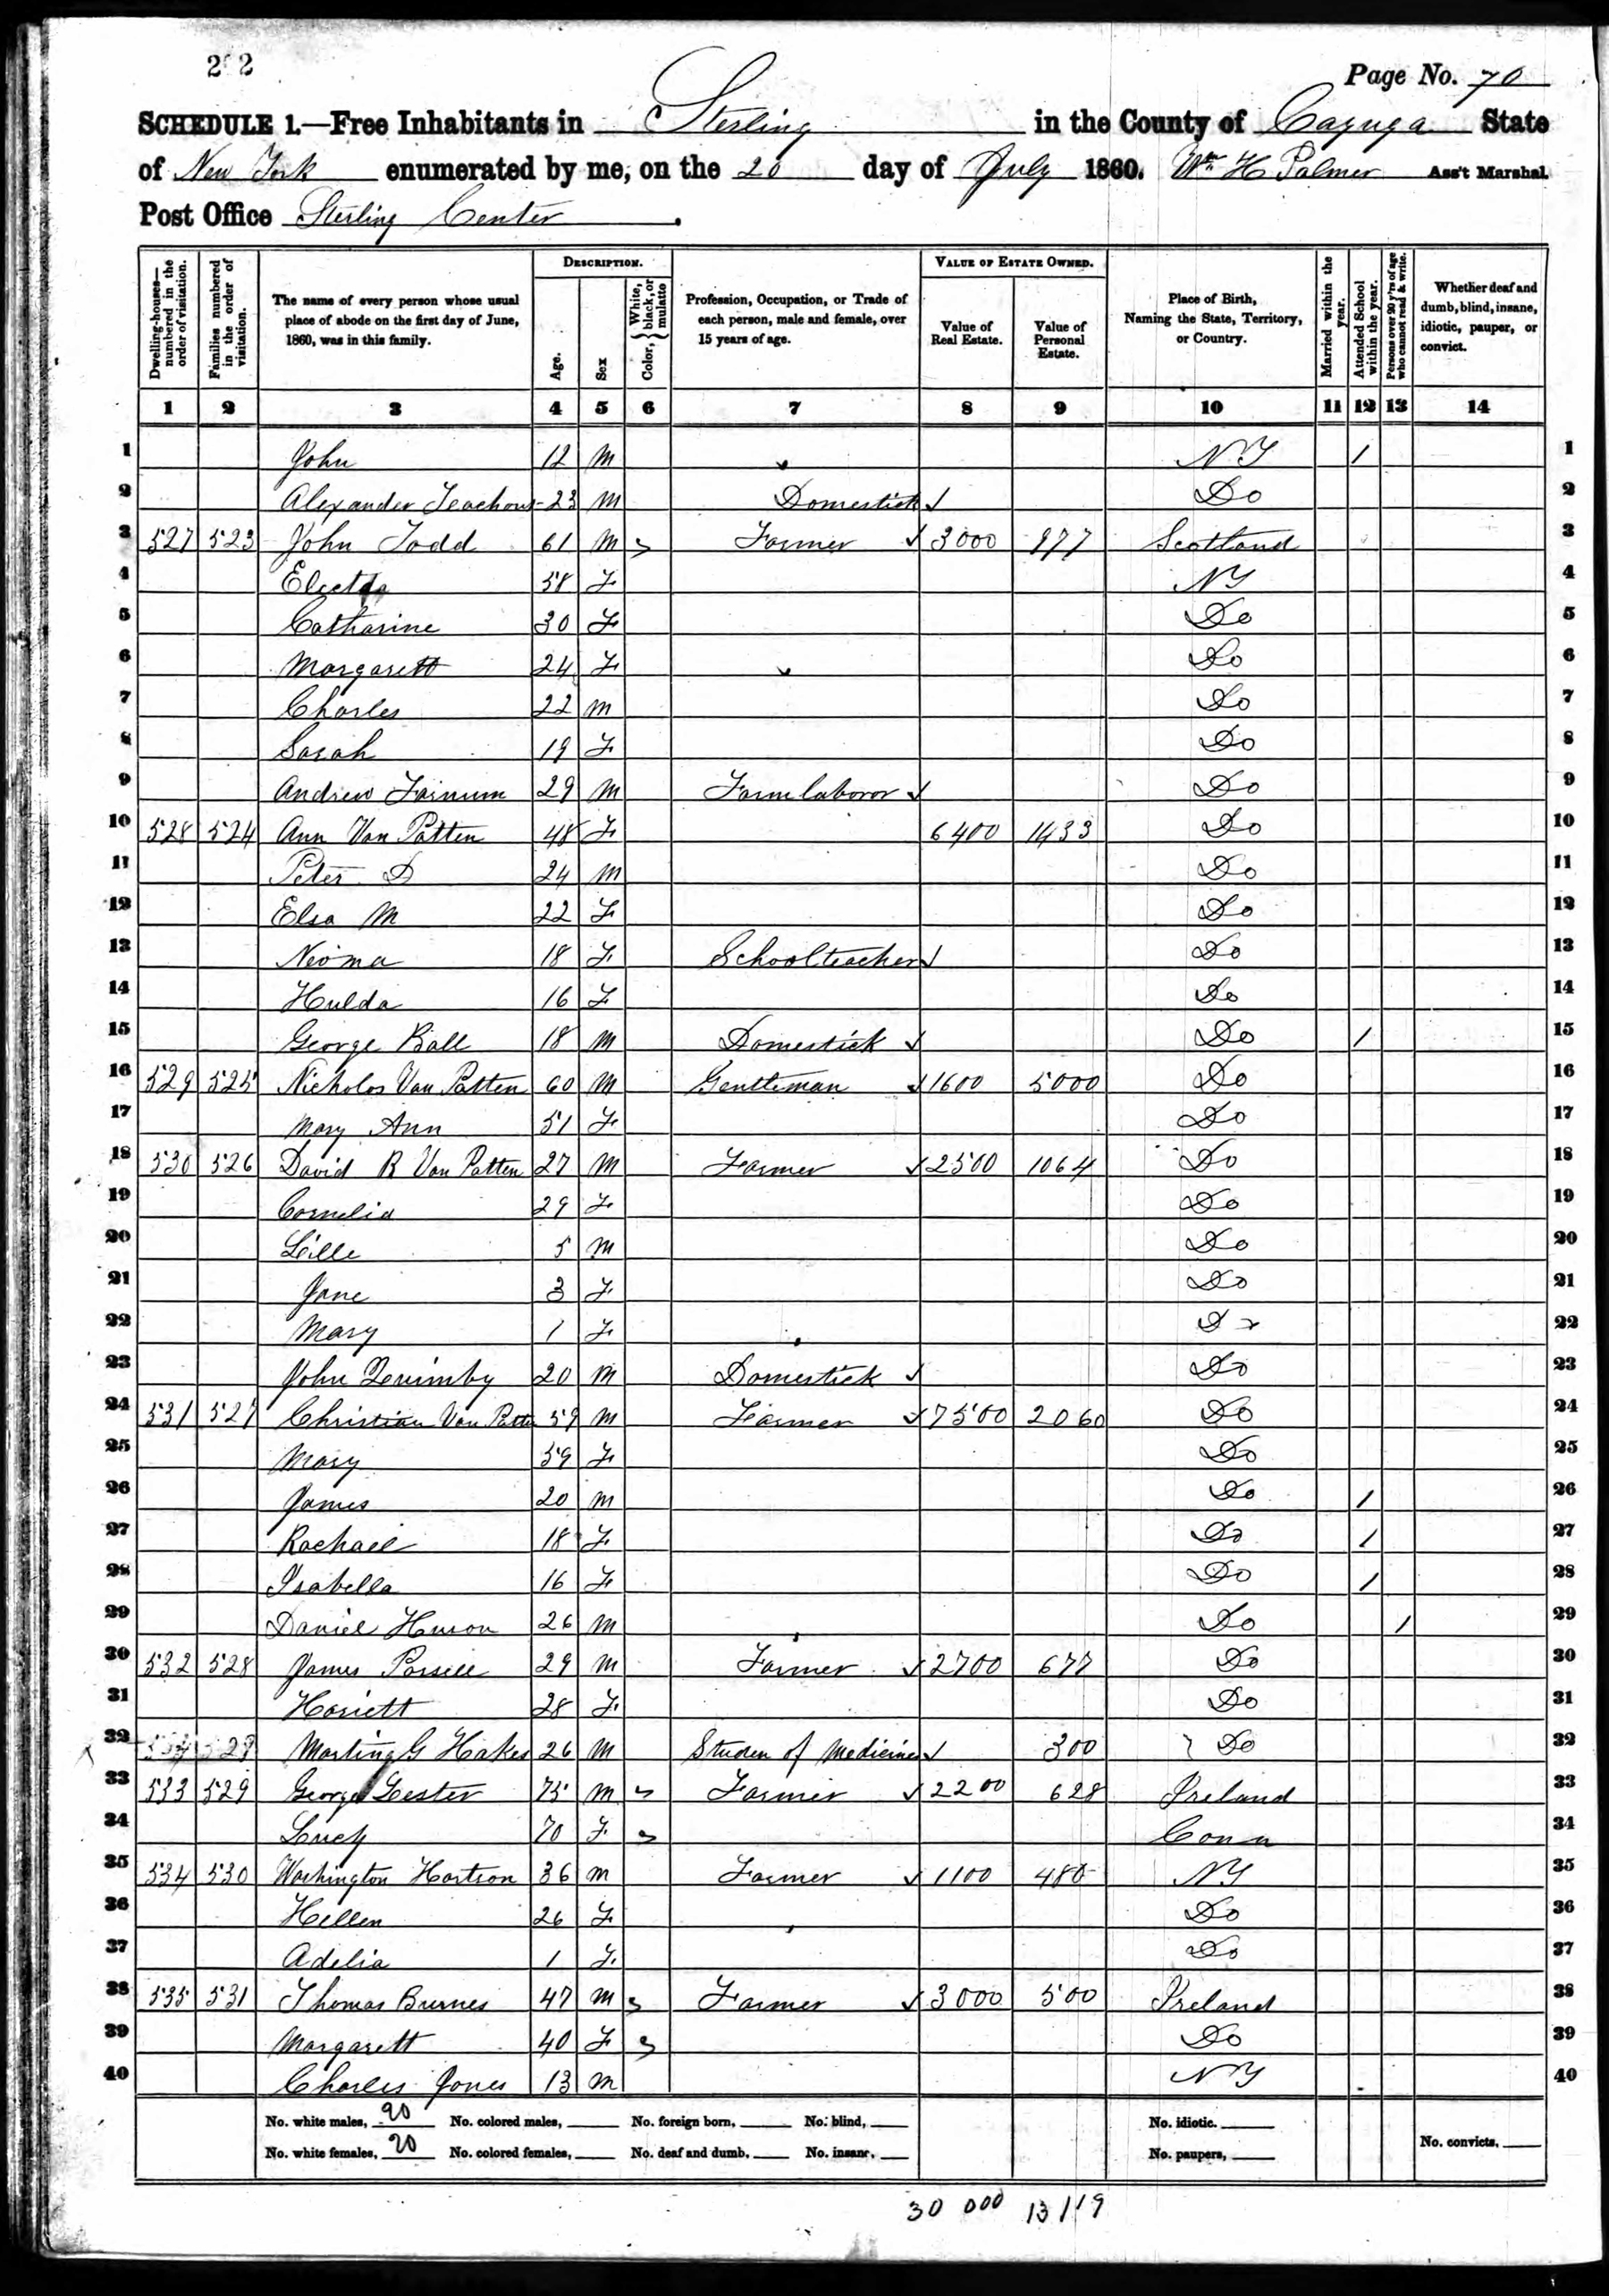 202
Page No. 70
SCHEDULE 1.—Free Inhabitants in Sterling in the County of Cayuga State
of New York enumerated by me, on the 20 day of July 1860. Wm H Palmer Ass't Marshal.
Post Office Sterling Center.
Dwelling-houses—numbered in the order of visitation.
Families numbered in the order of visitation.
The name of every person whose usual place of abode on the first day of June, 1860, was in this family.
DESCRIPTION.
Age.
Sex
Color, { White, black, or mulatto
Profession, Occupation, or Trade of each person, male and female, over 15 years of age.
VALUE OF ESTATE OWNED.
Value of Real Estate.
Value of Personal Estate.
Place of Birth, Naming the State, Territory, or Country.
Married within the year.
Attended School within the year.
Persons over 20 y'rs of age who cannot read & write.
Whether deaf and dumb, blind, insane, idiotic, pauper, or convict.
1 2 3 4 5 6 7 8 9 10 11 12 13 14
1 John 12 M NY / 1
2 Alexander 23 M Domestick Do 2
3 527 523 John Todd 61 M Farmer 3000 Scotland 3
4 Electa 58 F NY 4
5 Catharine 30 F Do 5
6 Margarett 24 F Do 6
7 Charles 22 M Do 7
8 Sarah 19 F Do 8
9 Andrew Farnum 29 M Farm laboror Do 9
10 528 524 Ann Van Patten 48 F 6400 1433 Do 10
11 Peter D 24 M Do 11
12 Elsa M 22 F Do 12
13 Neoma 18 F School teacher Do 13
14 Hulda 16 F Do 14
15 George Ball 18 M Domestick Do / 15
16 529 525 Nicholos Van Patten 60 M Gentleman 1600 5000 Do 16
17 Mary Ann 51 F Do 17
18 530 526 David R Van Patten 27 M Farmer 2500 1064 Do 18
19 Cornelia 29 F Do 19
20 Lille 5 M Do 20
21 Jane 3 F Do 21
22 Mary 1 F Do 22
23 John Quimby 20 M Domestick Do 23
24 531 527 Christian Van Patten 59 M Farmer 7500 2060 Do 24
25 Mary 59 F Do 25
26 James 20 M Do / 26
27 Rachael 18 F Do / 27
28 Isabella 16 F Do / 28
29 Daniel 26 M Do / 29
30 532 528 James 29 M Farmer 2700 677 Do 30
31 Hariett 28 F Do 31
32 Martin G Hakes 26 M Studen of Medicine 300 Do 32
33 533 529 George Lester 75 M Farmer 2200 628 Ireland 33
34 Lucy 70 F Conn 34
35 534 530 Washington Hartson 36 M Farmer 1100 480 NY 35
36 Hellen 26 F Do 36
37 Adelia 1 F Do 37
38 535 531 Thomas Burnes 47 M Farmer 3000 500 Ireland 38
39 Margarett 40 F Do 39
40 Charles Jones 13 M NY 40
No. white males, 20 No. colored males, No. foreign born, No. blind, No. idiotic.
No. white females, 20 No. colored females, No. deaf and dumb. No. insane, No. paupers, No. convicts,
30 000 13119